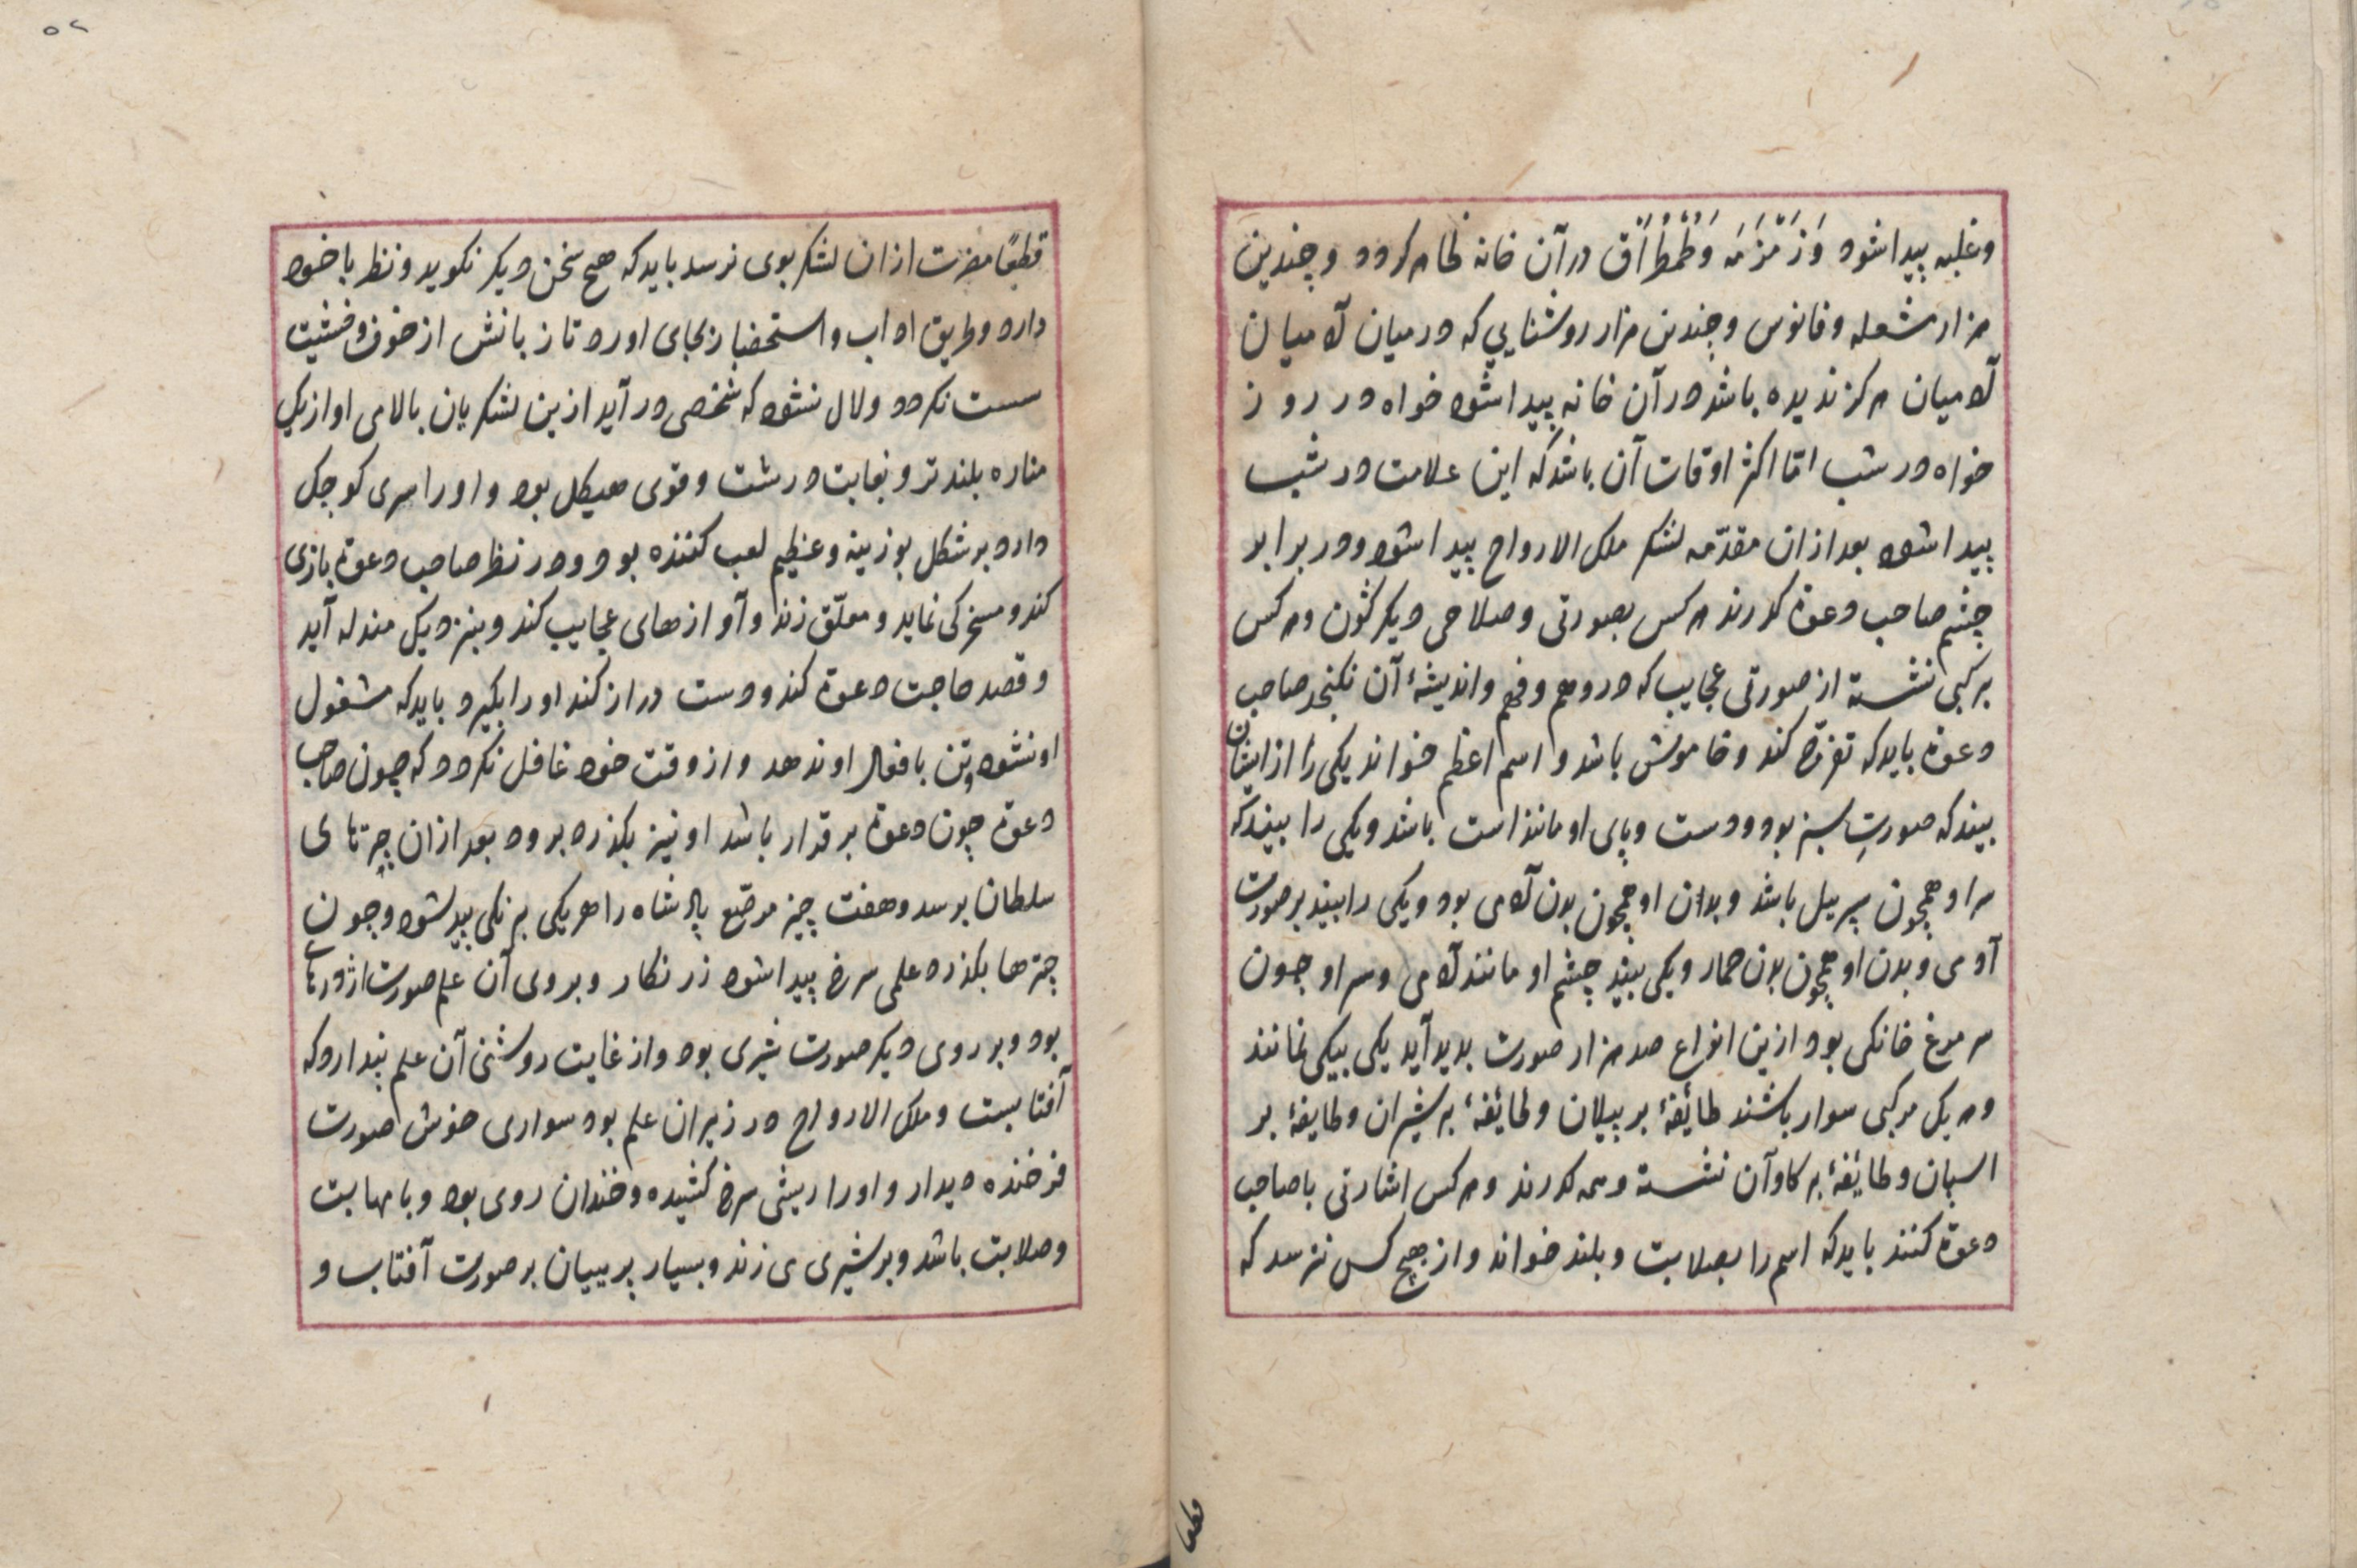 وغلبه پیدا شود وَزَمْزَمَه وَطُمْطُرَاق در آن خانه ظاهر کردد و چندین
هزار مشعله و فانوس و چندین هزار روشنایی که در میان آدمیان
آدمیان هرکز ندیده باشد در آن خانه پیدا شود خواه در روز
خواه در شب اما اکثر اوقات آن باشد که این علامت در شب
پیدا شود بعد ازان مقدّمه لشکر ملک الارواح پیدا شود و در برابر
چشم صاحب دعوة کذرند هر کس بصورتی و صلاحی دیکرکون و هر کس
برکبی نشسته از صورتی عجایب که در وهم و فهم و اندیشهٔ آن نکنجد صاحب
دعوة باید که تفرّج کند و خاموش باشد و اسم اعظم خواند یکی را از ایشان
بیند که صورتِ سبز بود و دست و پای او مانند است باشد و یکی را بیند که
سر او همچون سر پیل باشد و بدان او همچون بدن آدمی بود و یکی را بیند بر صورت
آدمی و بدن او همچون بدن حمار و یکی بیند چشم او مانند آدمی و سر او چون
سر مرغ خانکی بود ازین انواع صد هزار صورت بدید آید یکی بیکی نمانند
و هر یک مرکبی سوار باشند طائفهٔ بر پیلان و طائفهٔ بر شیران و طایفهٔ بر
اسپان و طائفهٔ بر کاوآن نشسته و همه کذرند و هر کس اشارتی با صاحب
دعوة کنند باید که اسم را بصلابت و بلند خواند و از هیچ کس نترسد که
قطعًا مضرت ازان لشکر بوی نرسد باید که هیچ سخن دیکر نکوید و نظر با خود
دارد و طریق اداب و استحضار بجای اورد تا زبانش از خوف و خشیت
سست نکردد و لال نشود که شخصی در آید ازین لشکریان بالای او از یک
مناره بلندتر و بغایت درشت و قوی هیکل بود و او را سری کوچک
دارد بر شکل بوزینه و عظیم لعب کننده بود و در نظر صاحب دعوة بازی
کند و مسخرکی نماید و معلّق زند و آوازهای عجایب کند و بنزدیک مندله آید
و قصد صاحب دعوة کند و دست دراز کند او را بکیرد باید که مشغول
او نشود و تن بافعال او ندهد و از وقت خود غافل نکردد که چون صاحب
دعوة چون دعوة برقرار باشد او نیز بکذرد برود بعد ازان چترهای
سلطان برسد و هفت چیز مرصّع پادشاه را هر یکی برنکی پیدا شود و چون
چترها بکذرد علمی سرخ پیدا شود زرنکار و بر وی آن علم صورت اژدرهای
بود و بر روی دیکر صورت شیری بود و از غایت روشنی آن علم پندارد که
آفتابست و ملک الارواح در زیر ان علم بود سواری خوش صورت
فرخنده دیدار و او را ریشی سرخ کشیده و خندان روی بود و با مهابت
و صلابت باشد و بر شیری می زند و بسیار پریبیان بر صورت آفتاب و